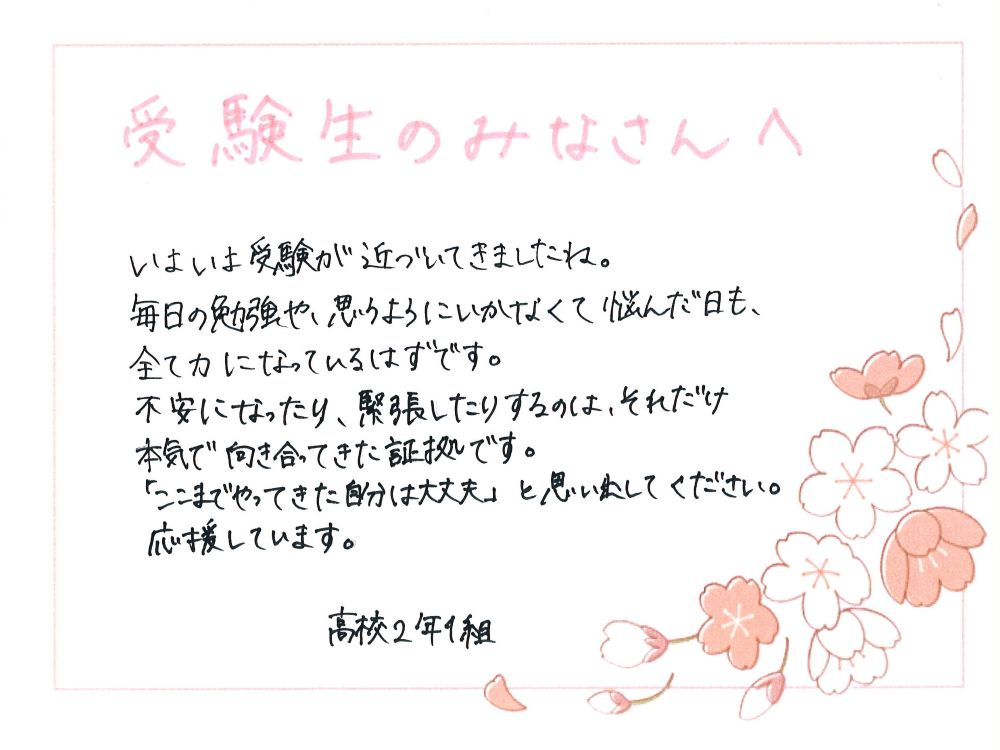 受験生のみなさんへ
いよいよ受験が近づいてきましたね。
毎日の勉強や、思うようにいかなくて悩んだ日も、
全て力になっているはずです。
不安になったり、緊張したりするのは、それだけ
本気で向き合ってきた証拠です。
「ここまでやってきた自分は大丈夫」と思いわしてください。
応援しています。
高校2年1組